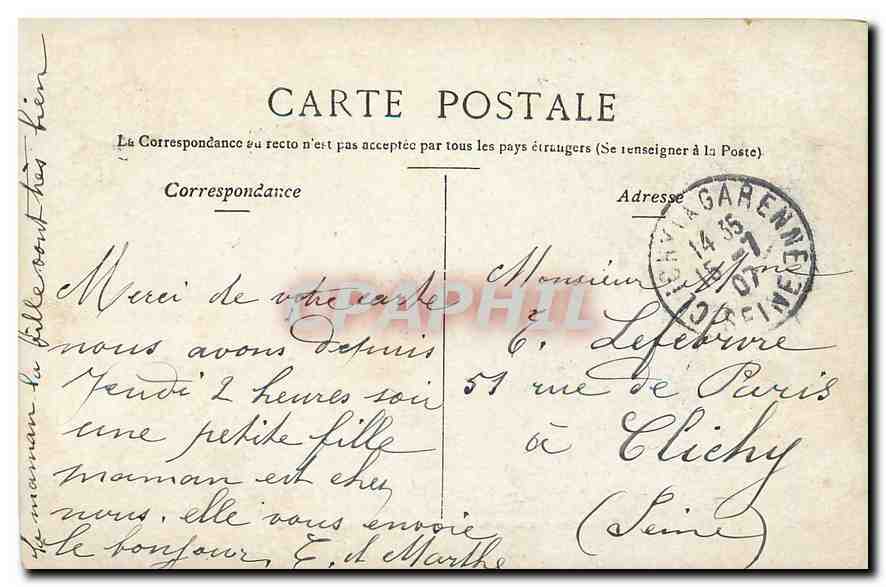 CARTE POSTALE
La Correspondance au recto n'est pas acceptée par tous les pays étrangers (Se renseigner à la Poste)
Correspondance
Merci de votre carte
nous avons depuis
Jeudi 2 heures soir
une petite fille
maman est chez
nous. elle vous envoie
le bonjour. E. et Marthe
La maman la fille vont très bien
Adresse
Monsieur Mme
E. Lefebvre
51 rue de Paris
à Clichy
(Seine)
LA GARENNE
14 35
15 -7
07
SEINE
CPAPHIL